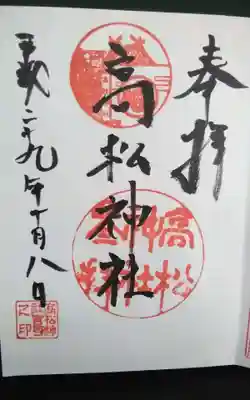 奉拝
高松神社
平成二十九年十月八日